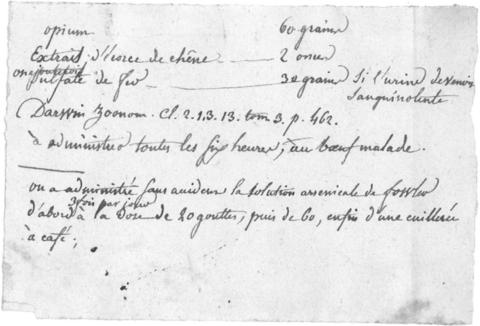 opium 60 grains
Extrait d'écorce de chêne — 2 onces
on ajoutoit
sulfate de fer — 30 grains si l'urine devenoit
sanguinolente
Darwin Zoonom. Cl. 2.1.3.13. tom 3. p. 462.
à administrer toutes les six heures, au bœuf malade.
on a administré sans accidens la solution arsenicale de fowler
3 fois par jour
d'abord à la dose de 20 gouttes, puis de 60, enfin d'une cuillerée
à café;